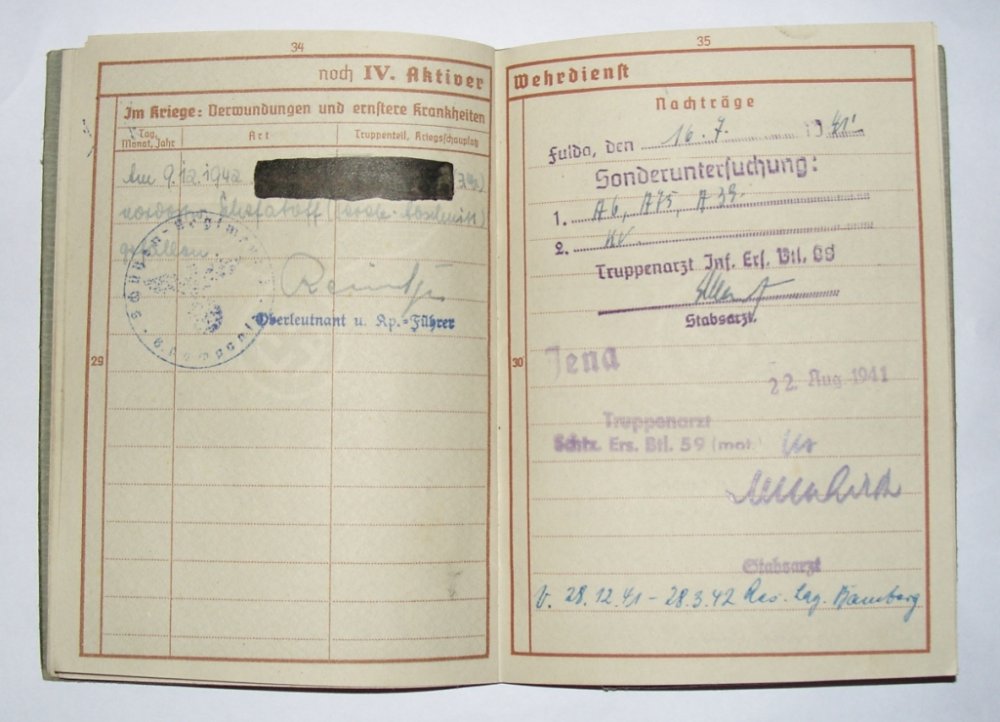 34
noch IV. Aktiver
Im Kriege: Verwundungen und ernstere Krankheiten
Tag, Monat, Jahr
Art
Truppenteil, Kriegsschauplatz
Am 9.12.1942
gefallen.
Oberleutnant u. Kp.-Führer
29
35
Wehrdienst
Nachträge
Fulda, den 16.7. 1941
Sonderuntersuchung:
1. A6, A75, A39.
2. kv.
Truppenarzt Inf. Ers. Btl. 88
Stabsarzt.
30
Jena
22. Aug 1941
Truppenarzt
Schtz. Ers. Btl. 59 (mot.) kv
Stabsarzt
V. 28.12.41 - 28.3.42 Res. Laz. Bamberg